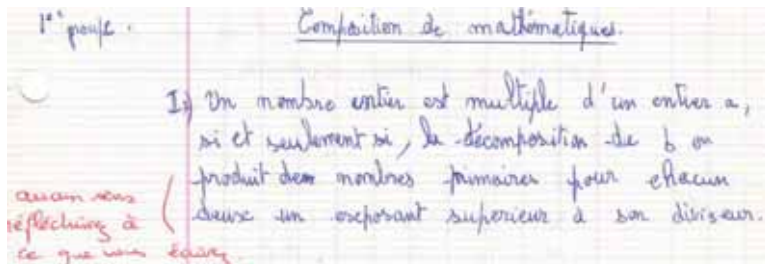 1er groupe.
Composition de mathématiques.
I:) Un nombre entier est multiple d'un entier a,
si et seulement si, la décomposition de b en
produit de nombres primaires pour chacun
deux un exposant superieur à son diviseur.
aucun sens
réfléchissez à
ce que vous écrivez.